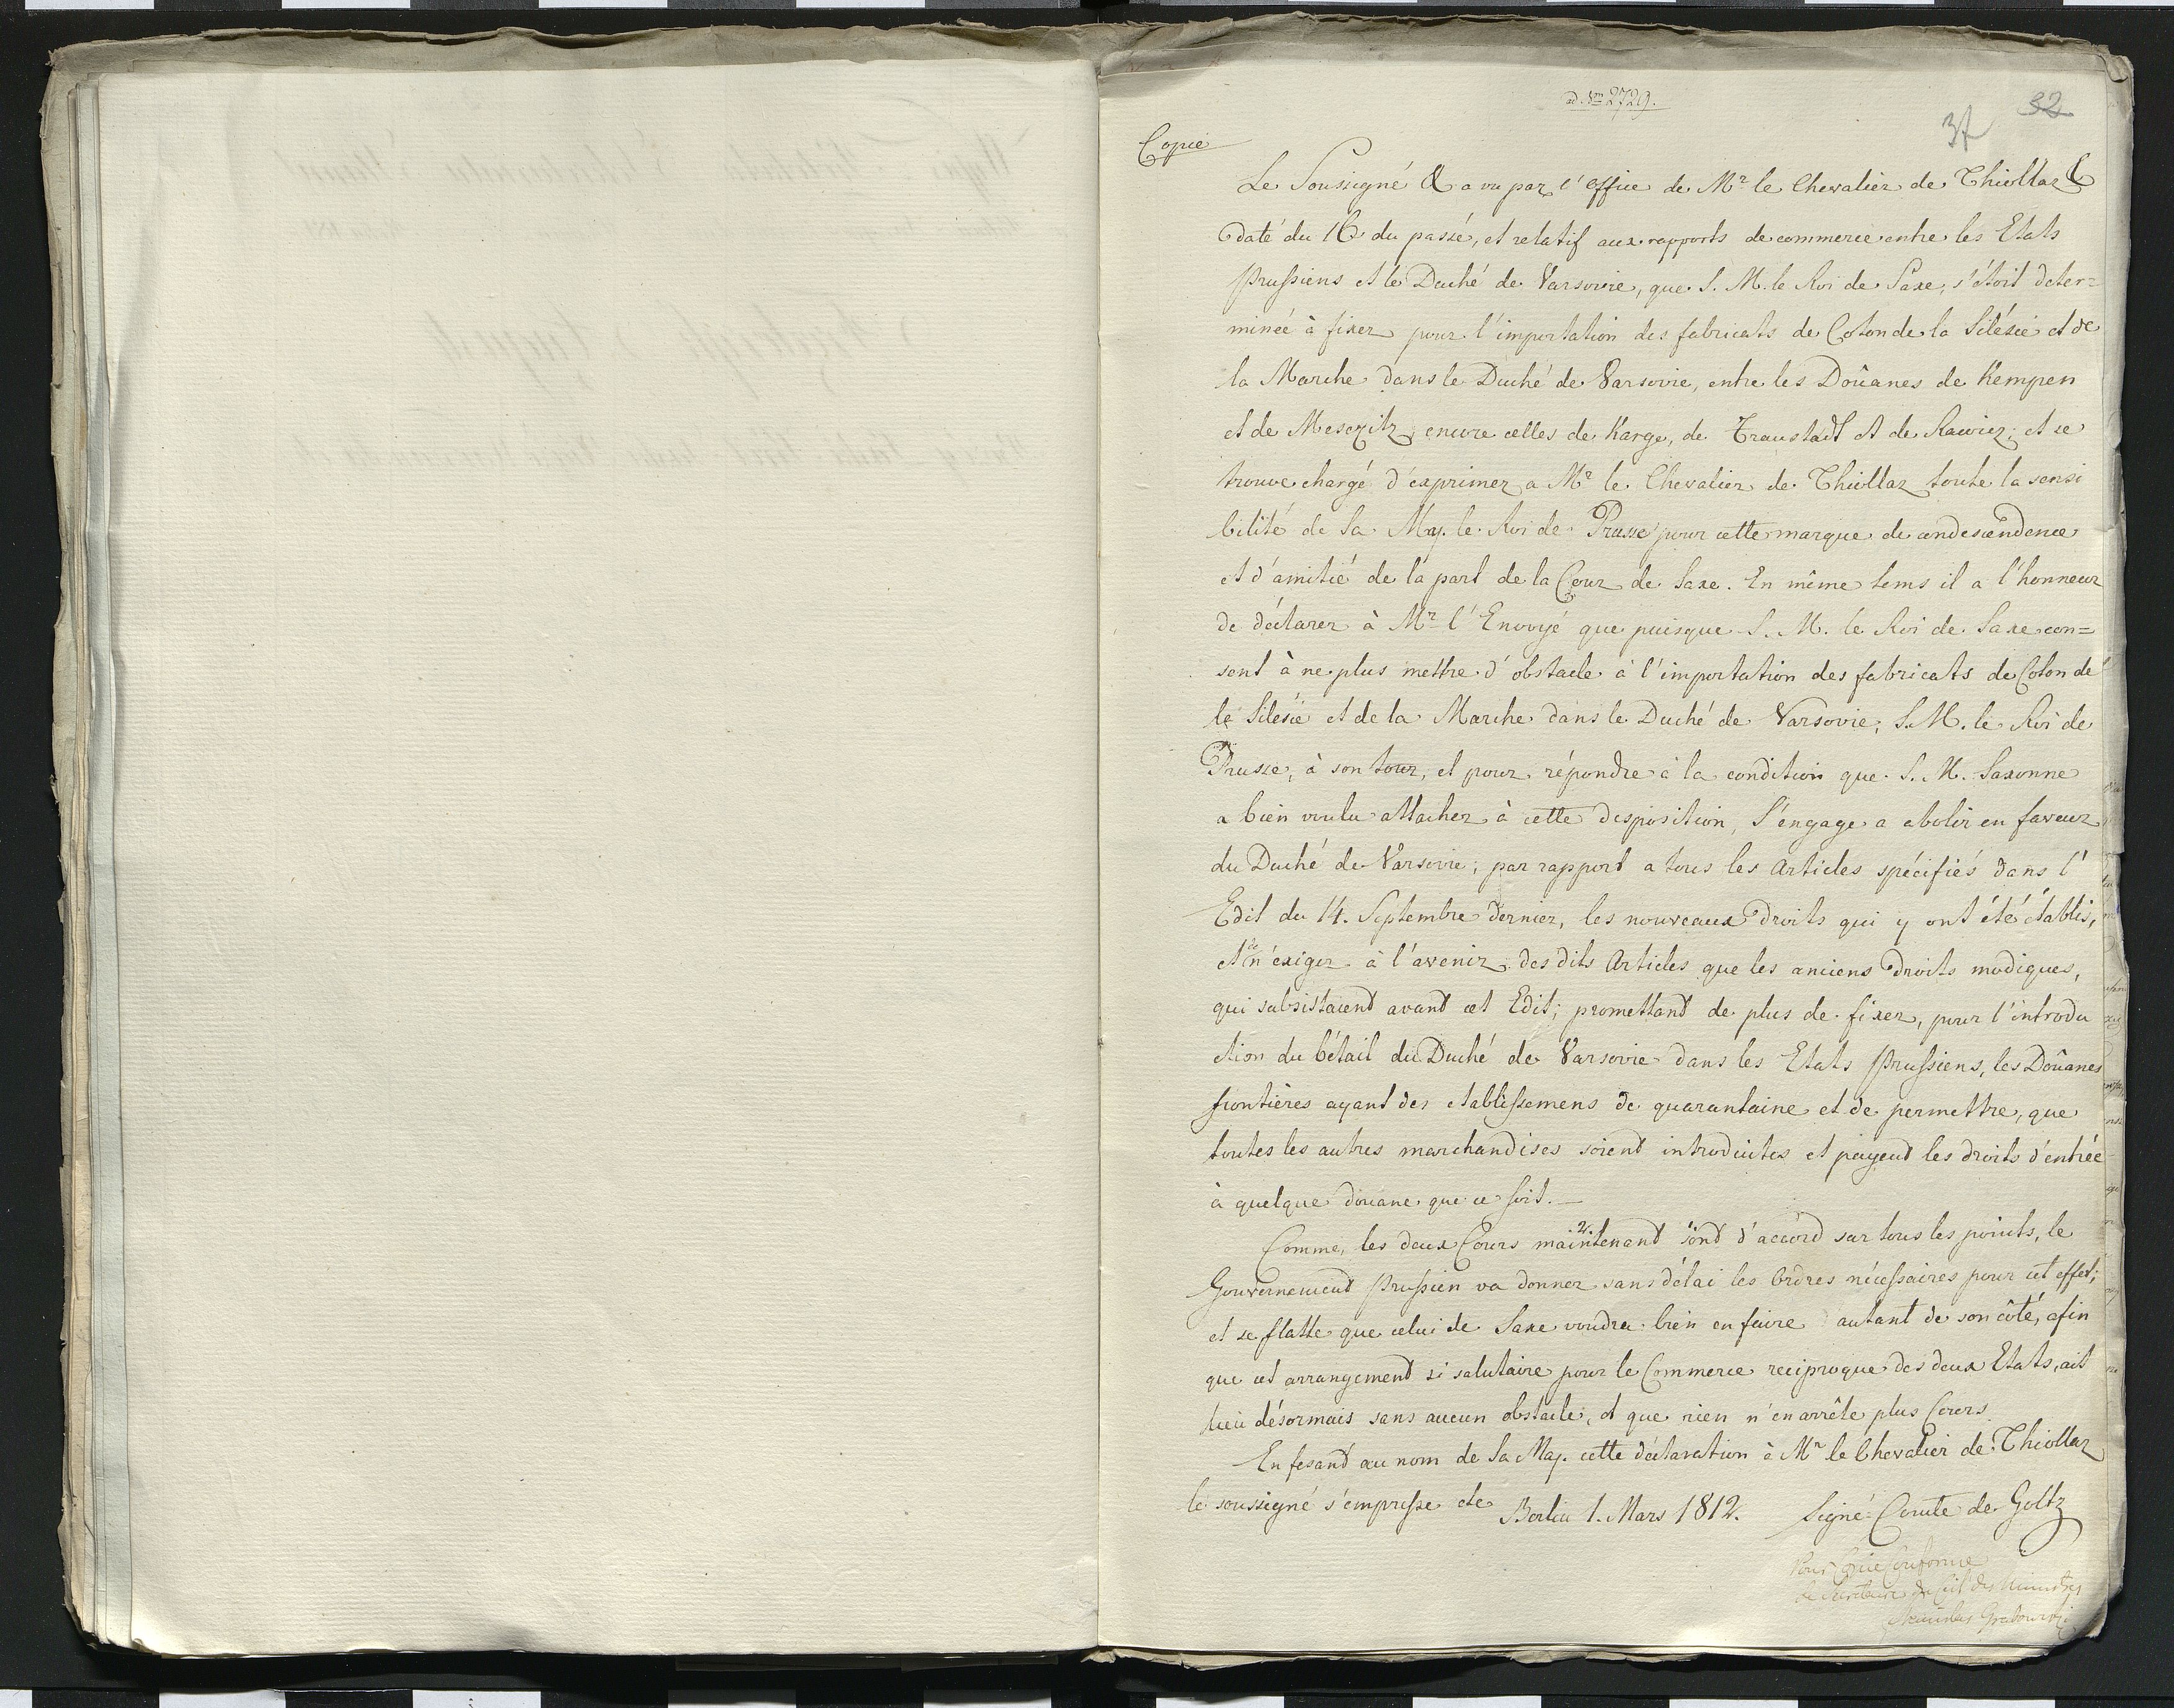 ad. Nm 2729.
32
37
Copie
Le Soussigné & a vu par l'office de Mr le Chevalier de Thiollaz &
daté du 16 du passé, et relatif aux rapports de commerce entre les Etats
prussiens et le Duché de Varsovie, que S. M. le Roi de Saxe, s'étoit deter=
minée à fixer pour l'importation des fabricats de Coton de la Silésie et de
la Marche dans le Duché de Varsovie, entre les Douanes de Kempen
et de Meseritz, encore celles de Karge, de Fraustadt et de Rawicz; et se
trouve chargé d'exprimer a Mr le Chevalier de Thiollaz toute la sensi
bilité de Sa Maj. le Roi de Prusse pour cette marque de condescendence
et d'amitié de la part de la Cour de Saxe. En même tems il a l'honneur
de déclarer à Mr l'Envoyé que puisque S. M. le Roi de Saxe con=
sent à ne plus mettre d'obstacle à l'importation des fabricats de Coton de
la Silésie et de la Marche dans le Duché de Varsovie, S. M. le Roi de
Prusse, à son tour, et pour répondre à la condition que S. M. Saxonne
a bien voulu attacher à cette disposition, s'engage a abolir en faveur
du Duché de Varsovie, par rapport a tous les Articles spécifiés dans l'
Edit du 14. Septembre dernier, les nouveaux Droits qui y ont été établis,
et de n'exiger à l'avenir des dits Articles que les anciens Droits modiques,
qui subsistaient avant cet Edit; promettant de plus de fixer, pour l'introdu
ction du bétail du Duché de Varsovie dans les Etats prussiens, les Douanes
frontières ayant des etablissemens de quarantaine et de permettre, que
toutes les autres marchandises soient introduites et payent les droits d'entrée
à quelque douane que ce soit. —
Comme, les deux Cours maintenant sont d'accord sur tous les points, le
Gouvernement prussien va donner sans délai les Ordres nécessaires pour cet effet;
et se flatte que celui de Saxe voudra bien en faire autant de son côté, afin
que cet arrangement si salutaire pour le Commerce reciproque des deux Etats, ait
lieu désormais sans aucun obstacle, et que rien n'en arrête plus Cours.
En fesant au nom de Sa Maj. cette déclaration à Mr le Chevalier de Thiollaz
le soussigné s'empresse de
Berlin 1. Mars 1812. Signé Comte de Goltz
Pour Copie Conforme
le Secrétaire du Ceil des Ministres
Stanislas Grabowski